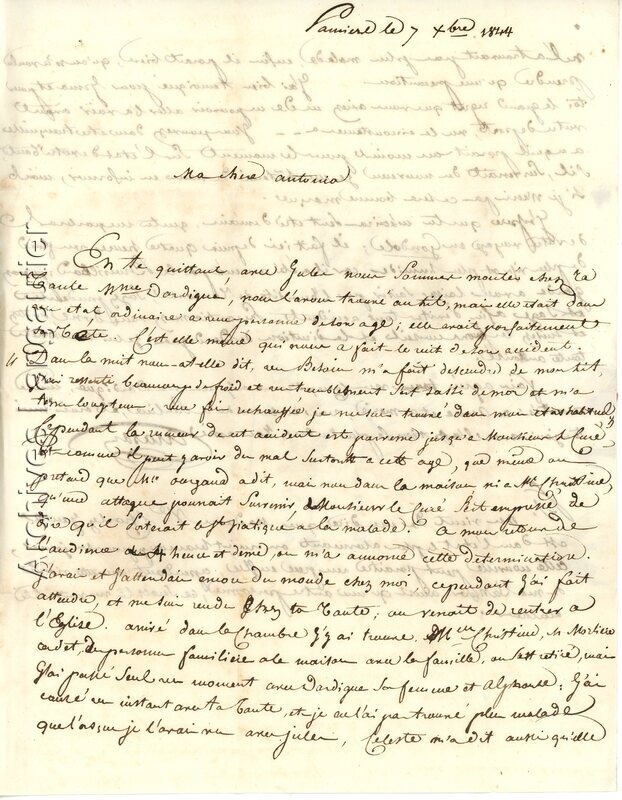 Pamiers le 7 xbre 1844
Ma chère antonia
En te quittant avec Jules nous sommes montés chez ta
tante Mme Dardigué, nous l'avons trouvé au lit, mais elle était dans
un état ordinaire a une personne de son age; elle avait parfaitement
sa tête. C'est elle même qui nous a fait le récit de son accident.
" Dans la nuit nous at-elle dit, un Besoin m'a fait descendre de mon lit
j'ai ressenté beaucoup de froid et un tremblement s'est saisi de moi et m'a
tenu longtems. une fois rechauffée je me suis trouvé dans mon etat habituel "
Cependant la rumeur de cet accident est parvenue jusqu'a Monsieur le Curé
et comme il peut y avoir du mal surtout a cette age, que même on
pretend que Mr a dit, mais non dans la maison ni a Mlle Christine,
qu'une attaque pourrait survenir, Monsieur le Curé s'est empressé de
dire qu'il porterait le St Viatique a la malade. a mon retour de
l'audience a 4 heures et demie on m'a annoncé cette determination.
J'avais et J'attendais encore du monde chez moi, cependant J'ai fait
attendre, et me suis rendu chez ta tante; on venait de rentrer a
l'Eglise. arrivé dans la chambre J'y ai trouvé Mlle Christine,
cadet, personnes familières a la maison avec la famille, on s'est retiré, mais
J'ai passé seul un moment avec Dardigué son femme et Alphonse; J'ai
causé un instant avec ta tante, et je ne l'ai pas trouvé plus malade
que lorsque je l'avais vu avec Jules, Celeste m'a dit aussi qu'elle
Archives Lassalier